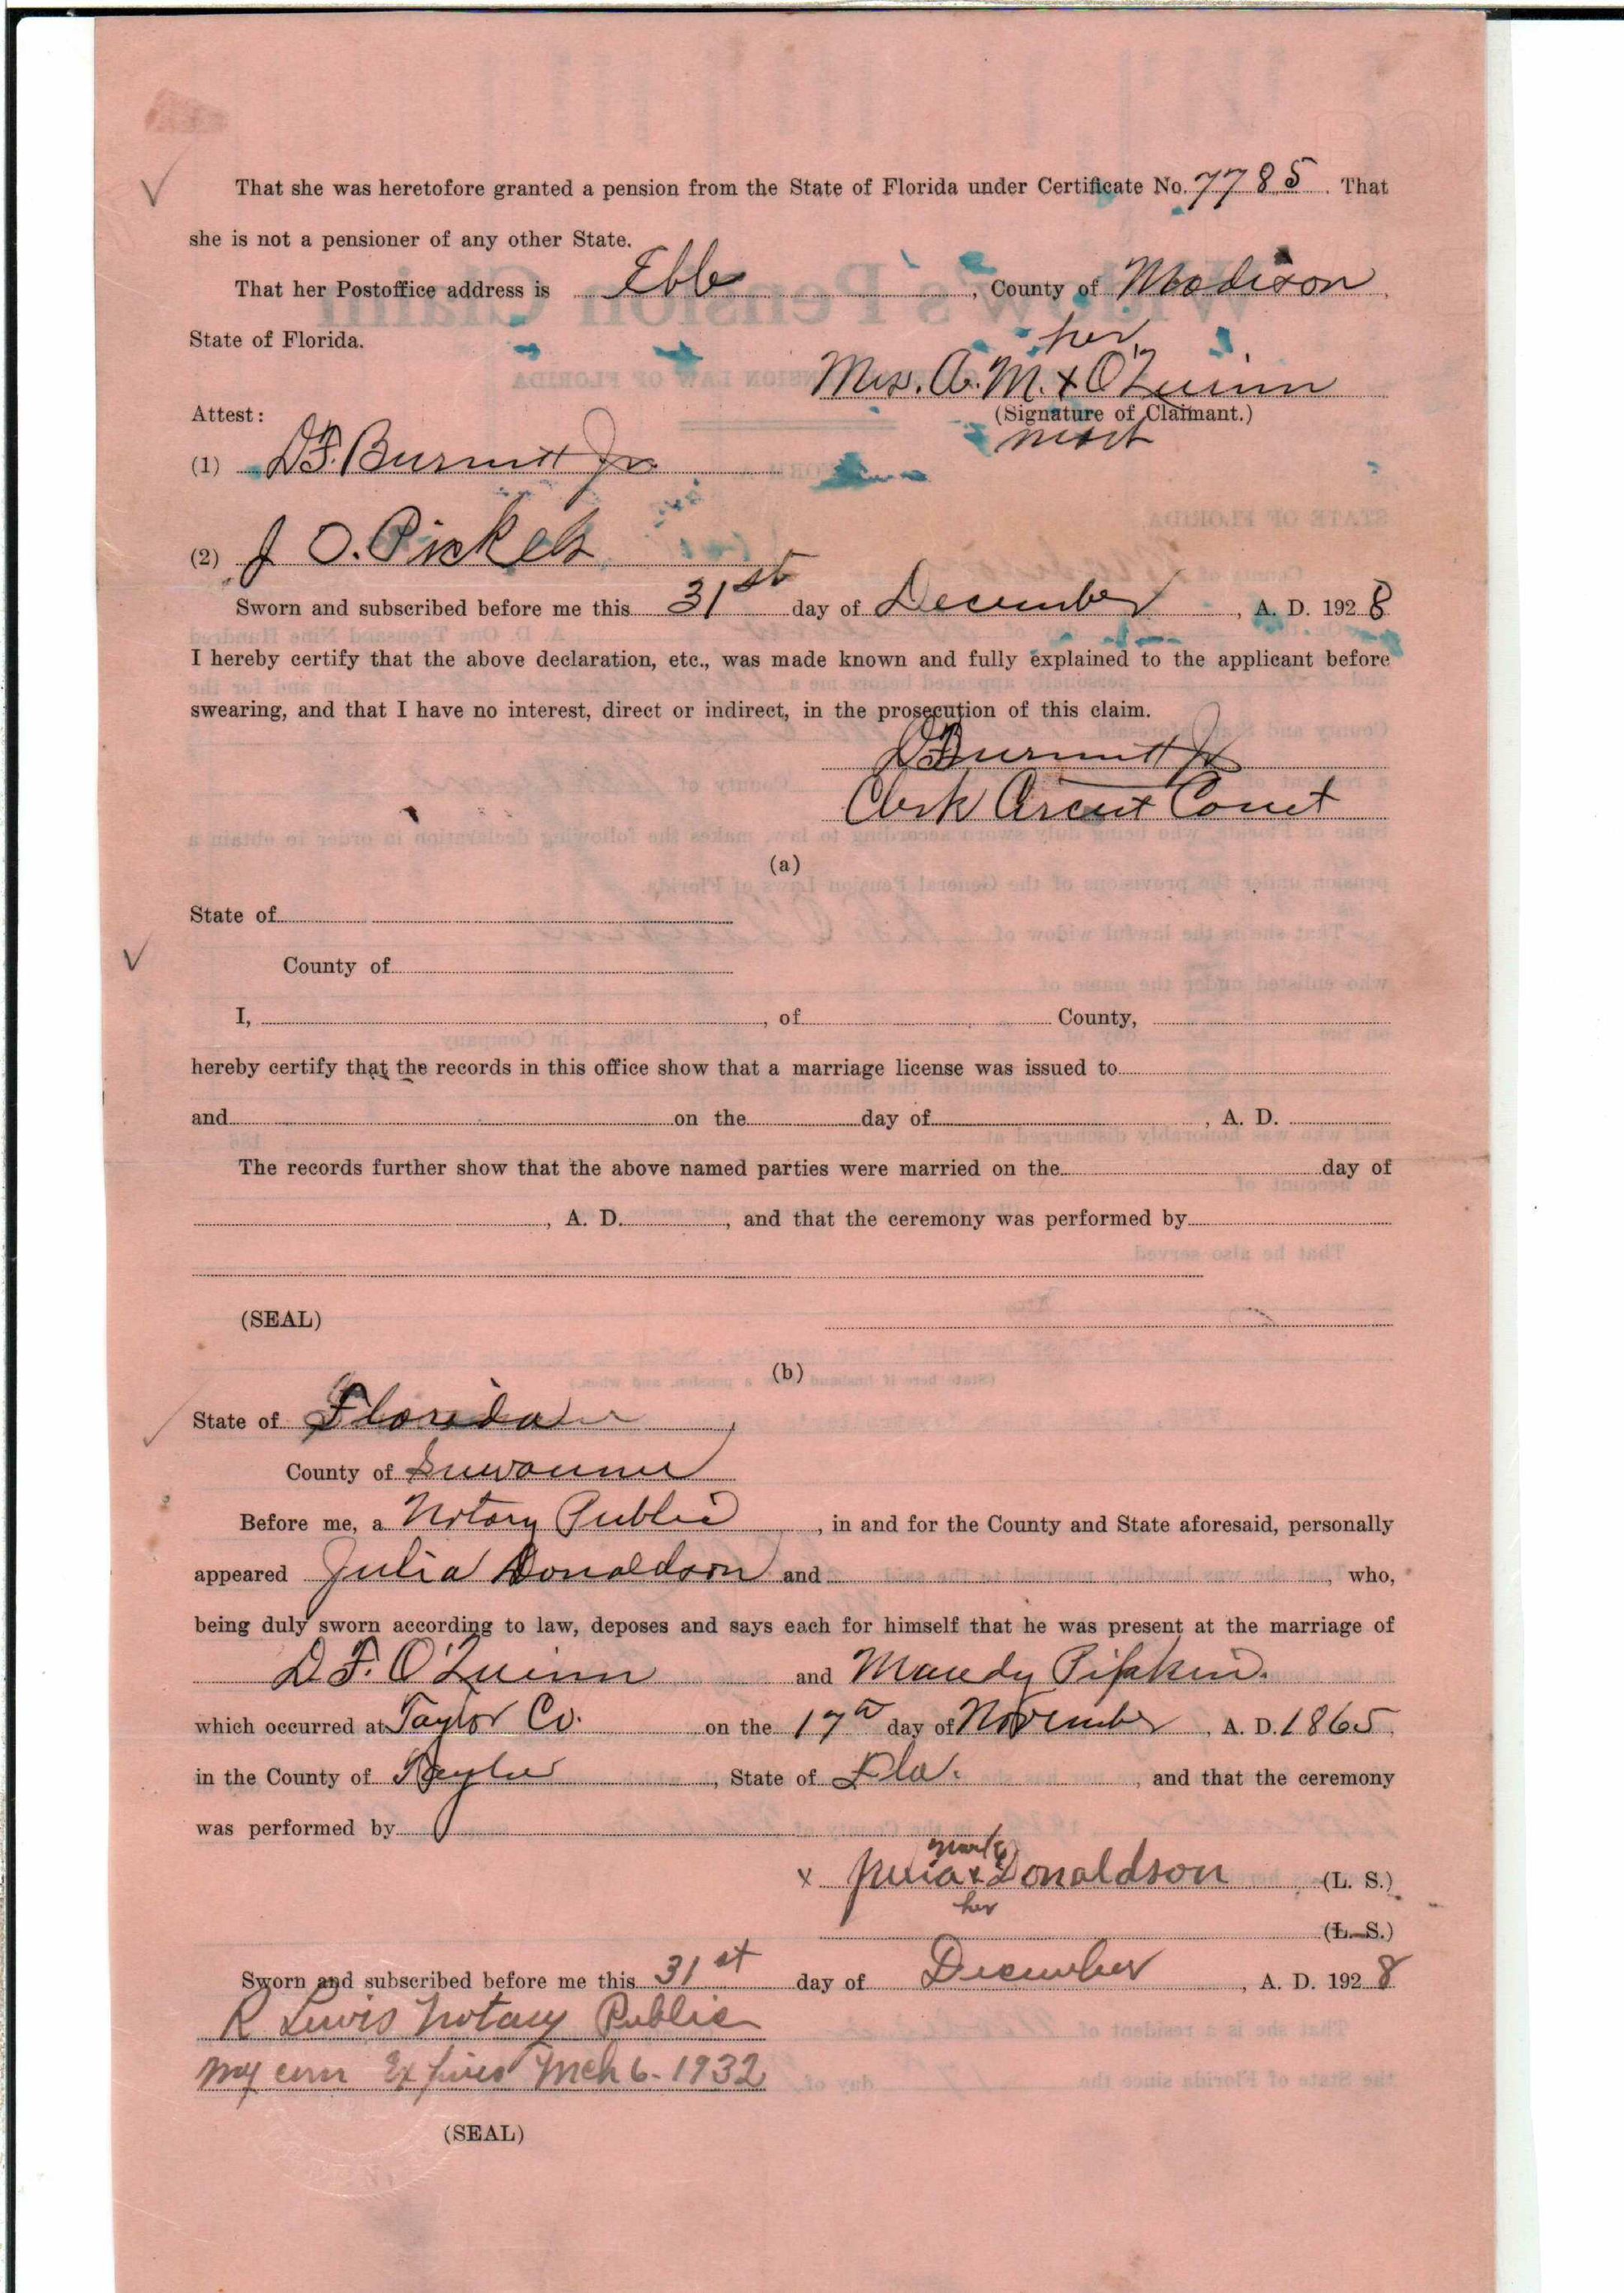 That she was heretofore granted a pension from the State of Florida under Certificate No. 7785. That
she is not a pensioner of any other State.
That her Postoffice address is Ebb, County of Madison,
State of Florida.
her
Mrs. A. M. x O'Quinn
Attest: (Signature of Claimant.)
mark
(1) D F. Burnett Jr.
(2) J O. Pickels
Sworn and subscribed before me this 31st day of December, A. D. 1928
I hereby certify that the above declaration, etc., was made known and fully explained to the applicant before
swearing, and that I have no interest, direct or indirect, in the prosecution of this claim.
D F Burnett Jr
Clerk Circuit Court
(a)
State of
County of
I, , of County,
hereby certify that the records in this office show that a marriage license was issued to
and on the day of , A. D.
The records further show that the above named parties were married on the day of
, A. D. , and that the ceremony was performed by
(SEAL)
(b)
State of Florida
County of Suwannee
Before me, a Notary Public, in and for the County and State aforesaid, personally
appeared Julia Donaldson and , who,
being duly sworn according to law, deposes and says each for himself that he was present at the marriage of
D F. O'Quinn and Mandy Pipkin.
which occurred at Taylor Co. on the 17th day of November, A. D. 1865,
in the County of Taylor, State of Fla. , and that the ceremony
was performed by
mark
x Julia x Donaldson (L. S.)
her
(L. S.)
Sworn and subscribed before me this 31st day of December, A. D. 1928
R Lewis Notary Public
My com Expires Mch 6-1932
(SEAL)